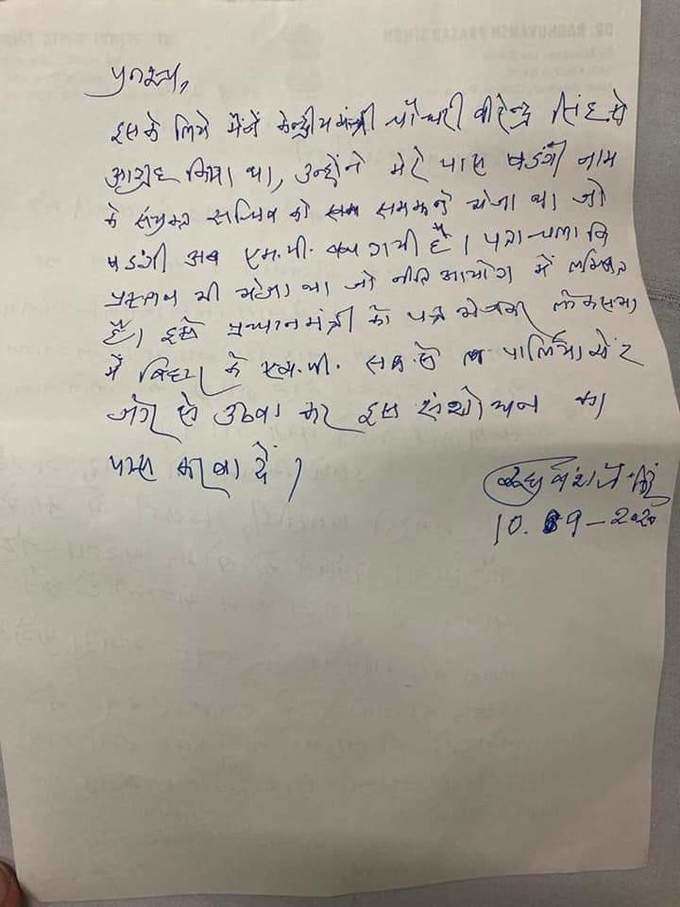 DR. RAGHUVANSH PRASAD SINGH
पुनश्च,
इसके लिये मैंने केन्द्रीय मंत्री चौधरी वीरेन्द्र सिंह से
आग्रह किया था, उन्होंने मेरे पास षडंगी नाम
के संयुक्त सचिव को समझने भेजा था जो
षडंगी अब एम.पी. बन गयी है। पता चला कि
प्रस्ताव भी भेजा था जो नीति आयोग में लम्बित
है। इसे प्रधानमंत्री को पत्र भेजकर लोकसभा
में बिहार के एम.पी. सब से पार्लियामेंट
जोर से उठवा कर इस संशोधन का
पास करवा दें।
रघुवंश प्र. सिंह
10.9-2020